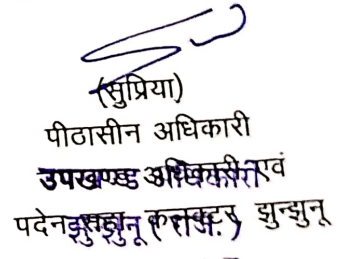 (सुप्रिया)
पीठासीन अधिकारी
उपखण्ड अधिकारी एवं
पदेन सहा कलक्टर झुन्झुनू